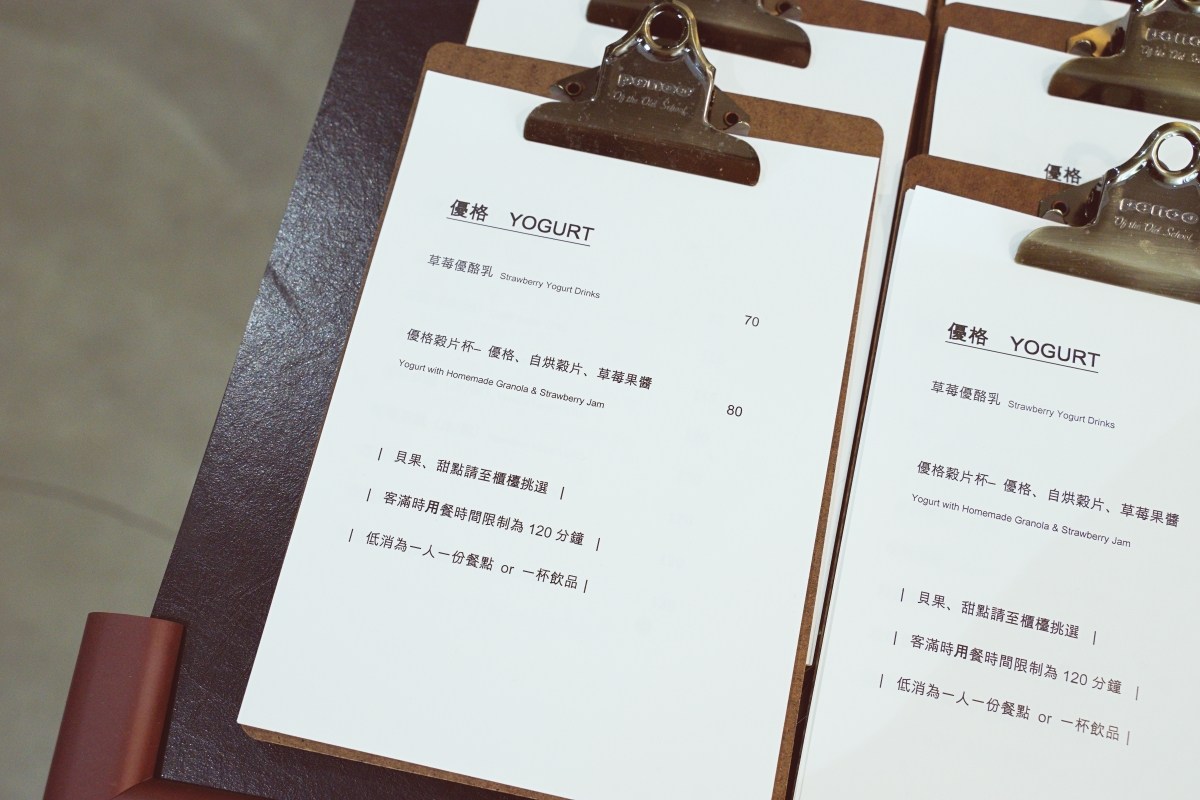 penco
By the Old School
優格 YOGURT
草莓優酪乳 Strawberry Yogurt Drinks
70
優格穀片杯– 優格、自烘穀片、草莓果醬
Yogurt with Homemade Granola & Strawberry Jam
80
| 貝果、甜點請至櫃檯挑選 |
| 客滿時用餐時間限制為 120 分鐘 |
| 低消為一人一份餐點 or 一杯飲品 |
penco
優格
penco
By the Old School
優格 YOGURT
草莓優酪乳 Strawberry Yogurt Drinks
優格穀片杯– 優格、自烘穀片、草莓果醬
Yogurt with Homemade Granola & Strawberry Jam
| 貝果、甜點請至櫃檯挑選 |
| 客滿時用餐時間限制為 120 分鐘 |
| 低消為一人一份餐點 or 一杯飲品 |